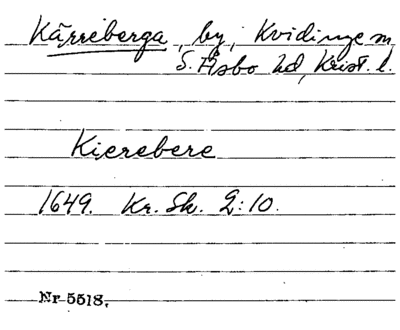 Kärreberga, by, Kvidinge sn,
S. Åsbo hd, Krist. l.
Kierebere
1649. Kr. Sk. 2:10.
Nr 5518.